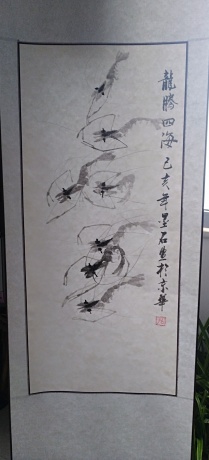 龍騰四海 己亥年墨石畫於京華